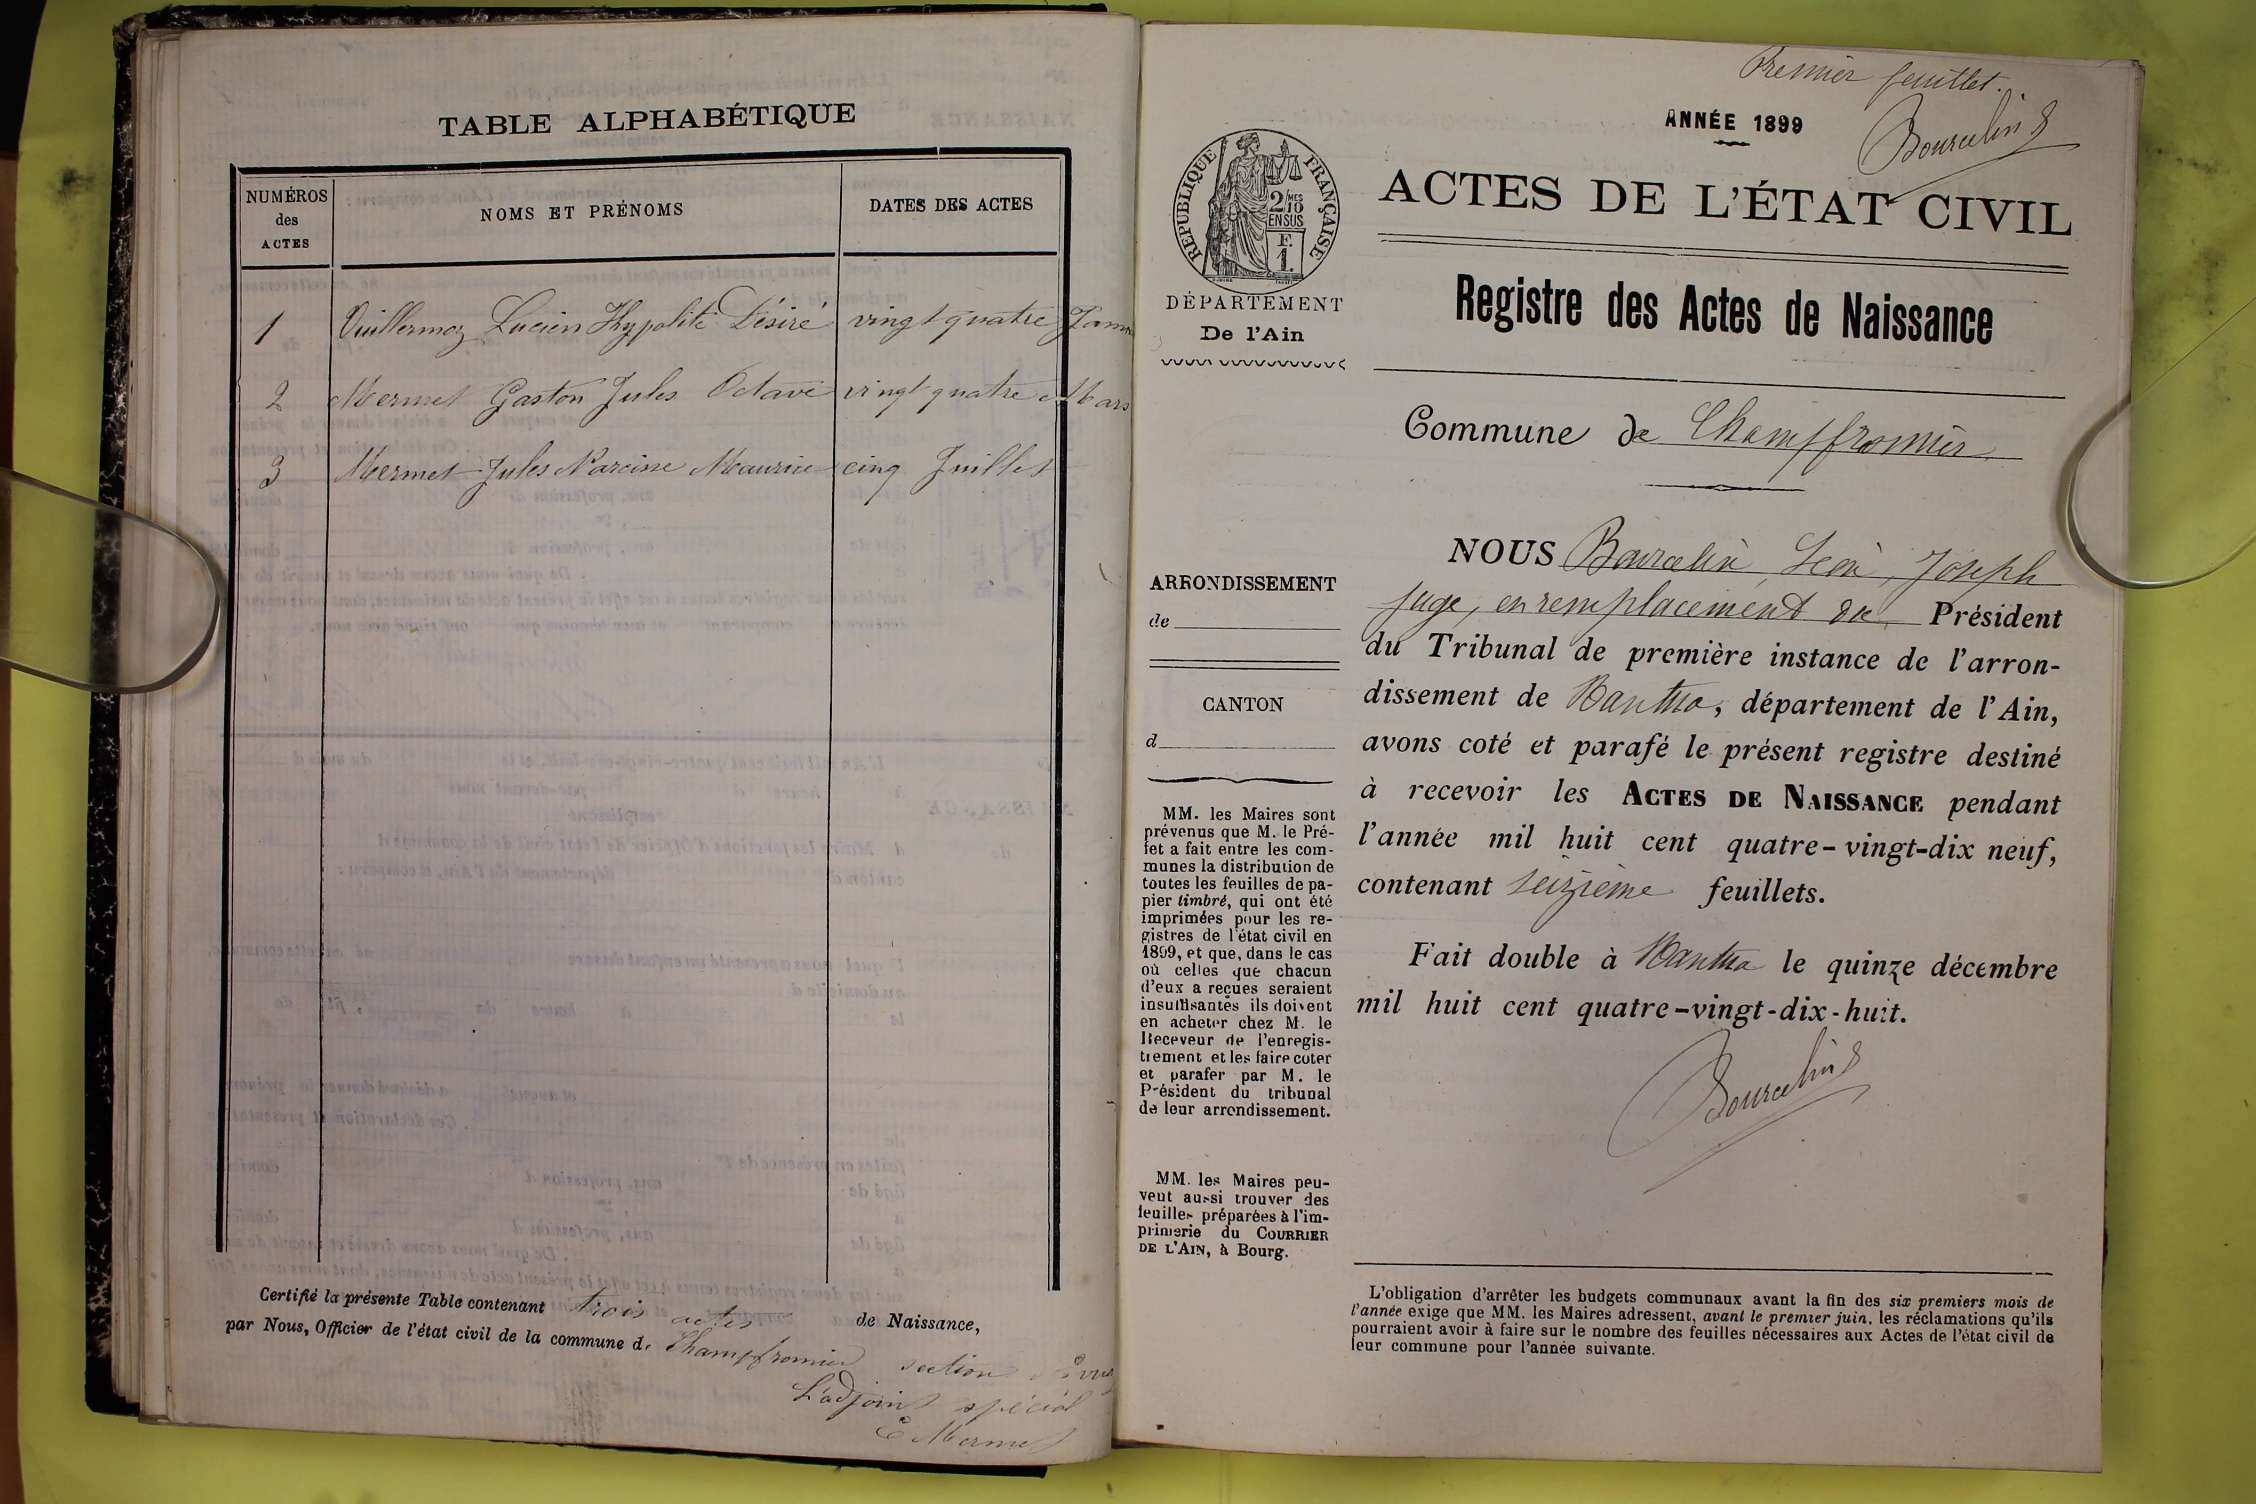 TABLE ALPHABÉTIQUE
NUMÉROS
des
ACTES
NOMS ET PRÉNOMS
DATES DES ACTES
1 Vuillermoz Lucien Hypolite Désiré vingt quatre Janv
2 Mermet Gaston Jules Octave vingt quatre Mars
3 Mermet Jules Narcisse Maurice cinq Juillet
Certifié la présente Table contenant trois actes de Naissance,
par Nous, Officier de l'état civil de la commune d. Champfromier section
L'adjoint spécial
E Mermet
Premier feuillet.
Bourcelin
ANNÉE 1899
ACTES DE L'ÉTAT CIVIL
RÉPUBLIQUE FRANÇAISE
2/MES
10
EN SUS
F.
1.
DÉPARTEMENT
De l'Ain
Registre des Actes de Naissance
Commune de Champfromier
ARRONDISSEMENT
de
CANTON
d
MM. les Maires sont
prévenus que M. le Pré-
fet a fait entre les com-
munes la distribution de
toutes les feuilles de pa-
pier timbré, qui ont été
imprimées pour les re-
gistres de l'état civil en
1899, et que, dans le cas
où celles que chacun
d'eux a reçues seraient
insuffisantes ils doivent
en acheter chez M. le
Receveur de l'enregis-
trement et les faire coter
et parafer par M. le
Président du tribunal
de leur arrondissement.
MM. les Maires peu-
vent aussi trouver des
feuilles préparées à l'im-
primerie du COURRIER
DE L'AIN, à Bourg.
NOUS Bourcelin, Léon, Joseph
juge, en remplacement du Président
du Tribunal de première instance de l'arron-
dissement de Nantua, département de l'Ain,
avons coté et parafé le présent registre destiné
à recevoir les ACTES DE NAISSANCE pendant
l'année mil huit cent quatre-vingt-dix neuf,
contenant seizième feuillets.
Fait double à Nantua le quinze décembre
mil huit cent quatre-vingt-dix-huit.
Bourcelin
L'obligation d'arrêter les budgets communaux avant la fin des six premiers mois de
l'année exige que MM. les Maires adressent, avant le premier juin, les réclamations qu'ils
pourraient avoir à faire sur le nombre des feuilles nécessaires aux Actes de l'état civil de
leur commune pour l'année suivante.